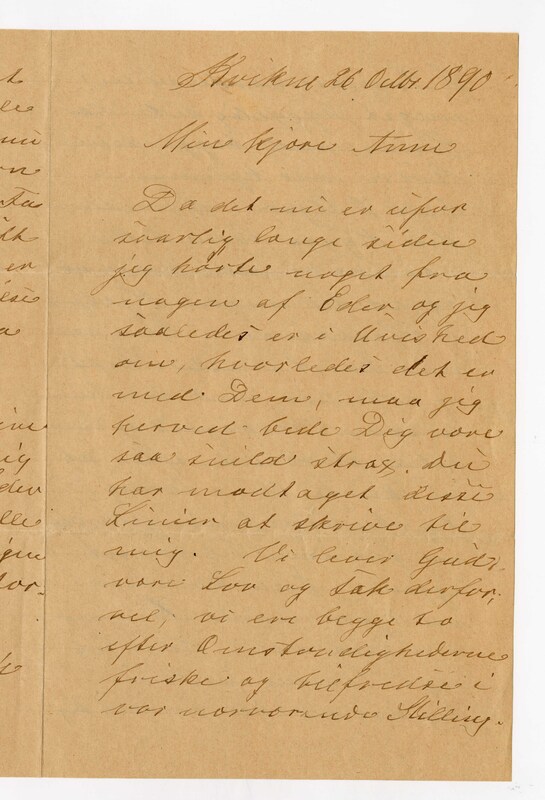 Kvikne 26 Octbr. 1890
Min kjære Anne
Da det nu er ufor
svarlig lange siden
jeg hørte noget fra
nogen af Eder og jeg
saaledes er i Uvished
om, hvorledes det er
med Dem, maa jeg
herved bede Dig være
saa snild strax. Du
har modtaget disse
Linier at skrive til
mig. Vi lever Gud
være Lov og tak derfor,
vel; vi ere begge to
efter Omstændighederne
friske og tilfredse i
vor nærværende Stilling.